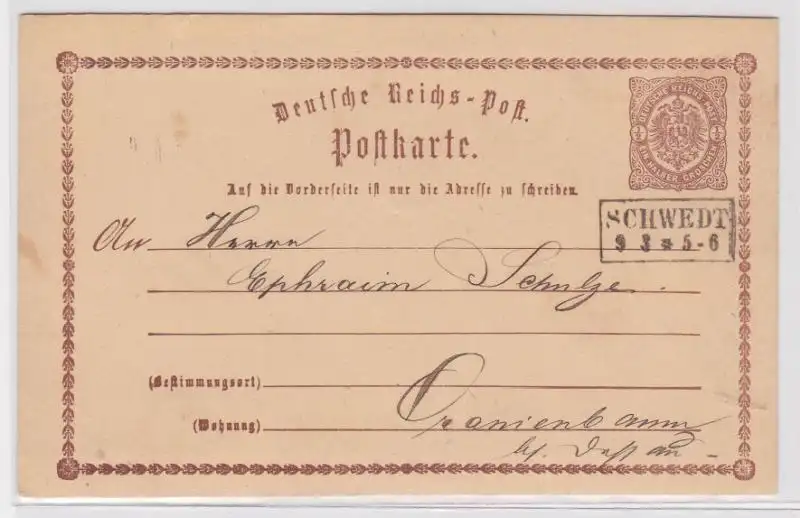 Deutsche Reichs-Post.
Postkarte.
Auf die Vorderseite ist nur die Adresse zu schreiben.
DEUTSCHE REICHS-POST
½ ½
EIN HALBER GROSCHEN
SCHWEDT
9 3 * 5-6
An Herrn
Ephraim Schulze.
(Bestimmungsort)
(Wohnung) Oranienbaum
bei Dessau